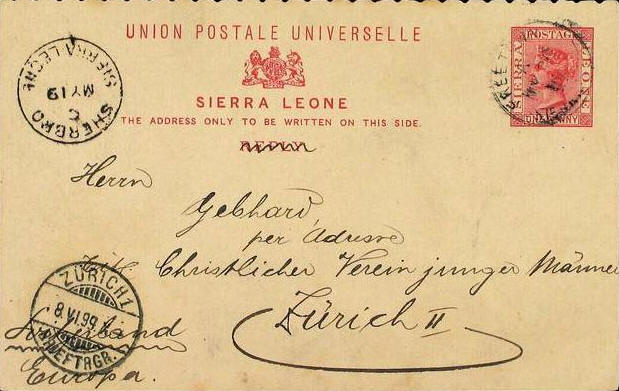 UNION POSTALE UNIVERSELLE
SIERRA LEONE
THE ADDRESS ONLY TO BE WRITTEN ON THIS SIDE.
REPLY
SIERRA LEONE
POSTAGE
ONE PENNY
SHERBRO
C
MY 19
SIERRA LEONE
Herrn
Gebhard,
per Adresse
Christlicher Verein junger Männer
Zürich II
Europa.
ZÜRICH 1
8.VI.99
BRIEFTRGR.